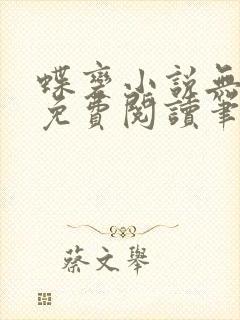 蝶变小说無
免費閱讀筆
蔡文舉